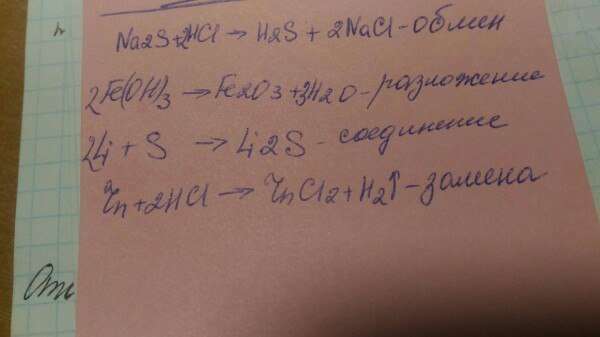 Na2S+2HCl → H2S + 2NaCl - обмен
2Fe(OH)3 → Fe2O3 + 3H2O - разложение
2Li + S → Li2S - соединение
Zn + 2HCl → ZnCl2 + H2↑ - замена